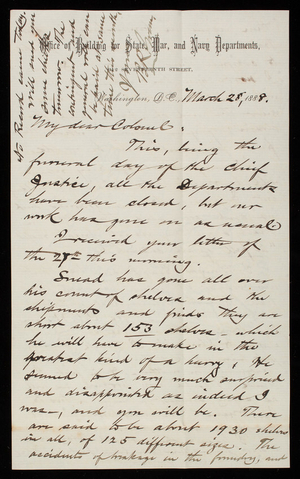 No Snead came today.
will surely
Office of Building for State, War, and Navy Departments,
SEVENTEENTH STREET,
Washington, D.C., March 28, 1888.
My dear Colonel:
This, being the
funeral day of the Chief
Justice, all the Departments
have been closed, but our
work has gone on as usual.
I received your letter of
the 27th this morning.
Snead has gone all over
his count of shelves and the
shipments and finds they are
short about 153 shelves which
he will have to make in the
greatest kind of a hurry. He
seemed to be very much surprised
and disappointed as indeed I
was, and you will be. There
are said to be about 1930 shelves
in all, of 125 different sizes. The
accidents of breakage in the foundry, and